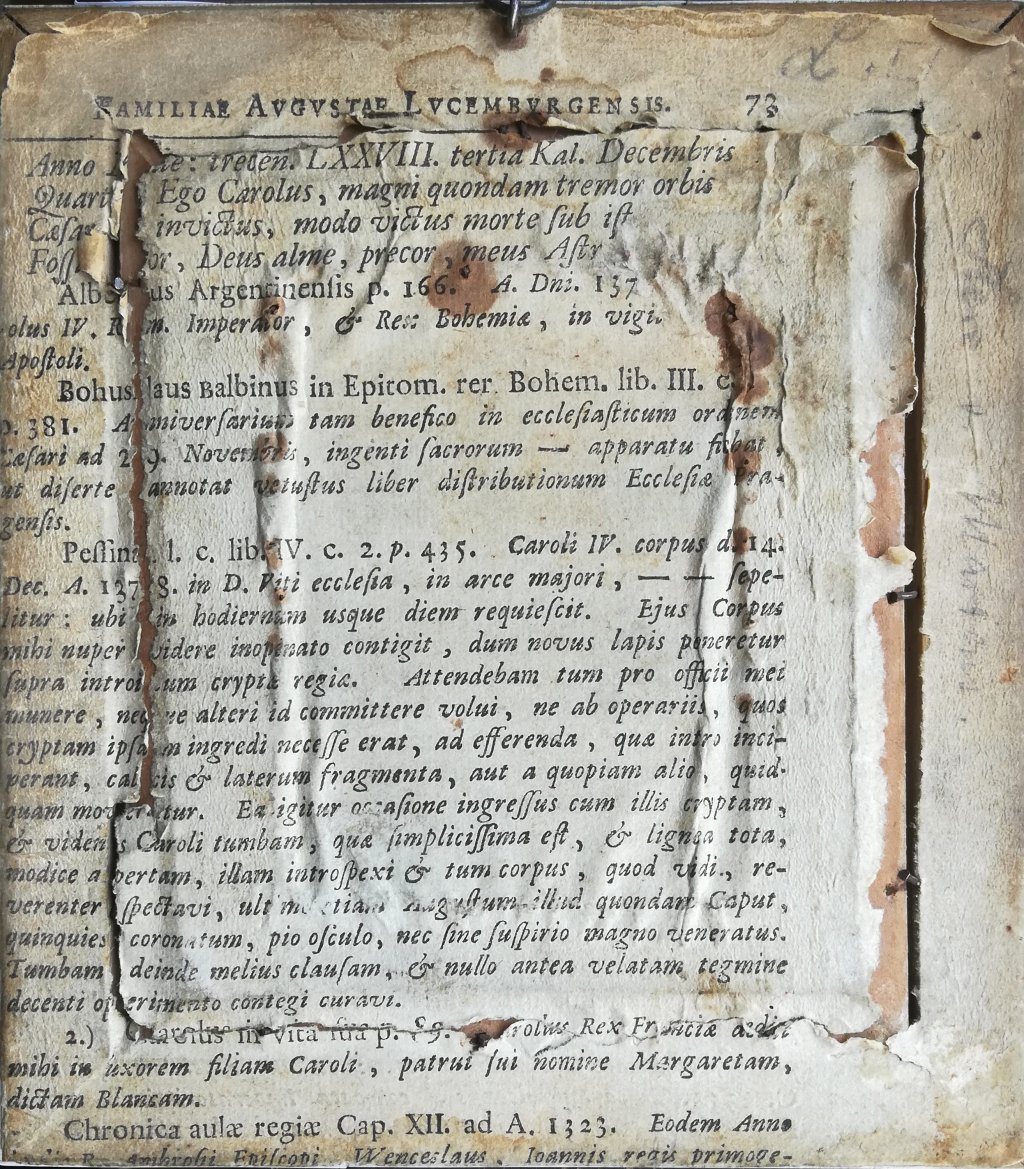 FAMILIAE AVGVSTAE LVCEMBVRGENSIS. 73
Anno trecen. LXXVIII. tertia Kal. Decembris
Ego Carolus, magni quondam tremor orbis
invictus, modo victus morte ſub
Deus alme, precor, meus
Argentinenſis p. 166. A. Dni. 137
olus IV. Imperator, & Rex Bohemiæ, in
Apoſtoli.
Bohuslaus Balbinus in Epitom. rer. Bohem. lib. III. c.
p. 381. Anniverſarium tam benefico in eccleſiaſticum ordinem
Cæſari ad 29. Novembris, ingenti ſacrorum — apparatu fiebat,
ut diſerte annotat vetuſtus liber diſtributionum Eccleſiæ Pra-
genſis.
Peſſina l. c. lib. IV. c. 2. p. 435. Caroli IV. corpus d. 14.
Dec. A. 1378. in D. Viti eccleſia, in arce majori, — — ſepe-
litur: ubi in hodiernum usque diem requieſcit. Ejus Corpus
mihi nuper videre inopinato contigit, dum novus lapis poneretur
ſupra introitum cryptæ regiæ. Attendebam tum pro officii mei
munere, neque alteri id committere volui, ne ab operariis, quos
cryptam ipſam ingredi neceſſe erat, ad efferenda, quæ intro inci-
derant, calcis & laterum fragmenta, aut a quopiam alio, quid-
quam moveretur. Ea igitur occaſione ingreſſus cum illis cryptam,
& videns Caroli tumbam, quæ ſimpliciſſima eſt, & lignea tota,
modice apertam, illam introſpexi & tum corpus, quod vidi, re-
verenter ſpectavi, Auguſtum illud quondam Caput,
quinquies coronatum, pio oſculo, nec ſine ſuſpirio magno veneratus.
Tumbam deinde melius clauſam, & nullo antea velatam tegmine
decenti operimento contegi curavi.
2.) Carolus in vita ſua p. Carolus Rex Franciæ dedit
mihi in uxorem filiam Caroli, patrui ſui nomine Margaretam,
dictam Blancam.
Chronica aulæ regiæ Cap. XII. ad A. 1323. Eodem Anno
Ambroſii Epiſcopi Wenceslaus, Ioannis regis primoge-